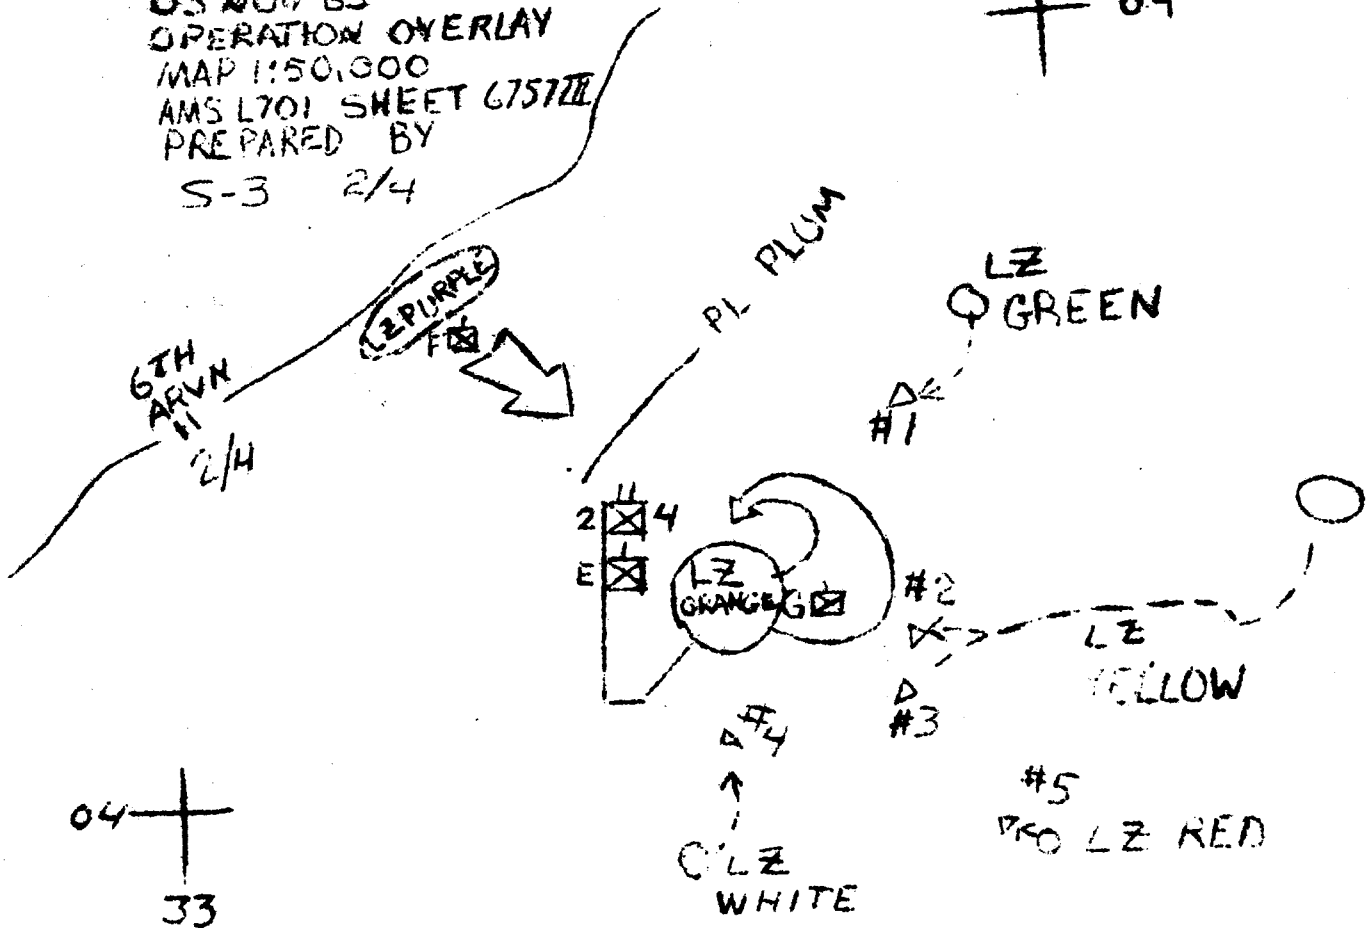 OPERATION OVERLAY
MAP 1:50,000
AMS L701 SHEET 6757III
PREPARED BY
S-3 2/4
09
PL PLUM
LZ PURPLE
F
LZ
GREEN
#1
6TH
ARVN
2/4
2 4
E
LZ
ORANGE
G
#2
LZ
YELLOW
#3
#4
#5
LZ RED
LZ
WHITE
04
33